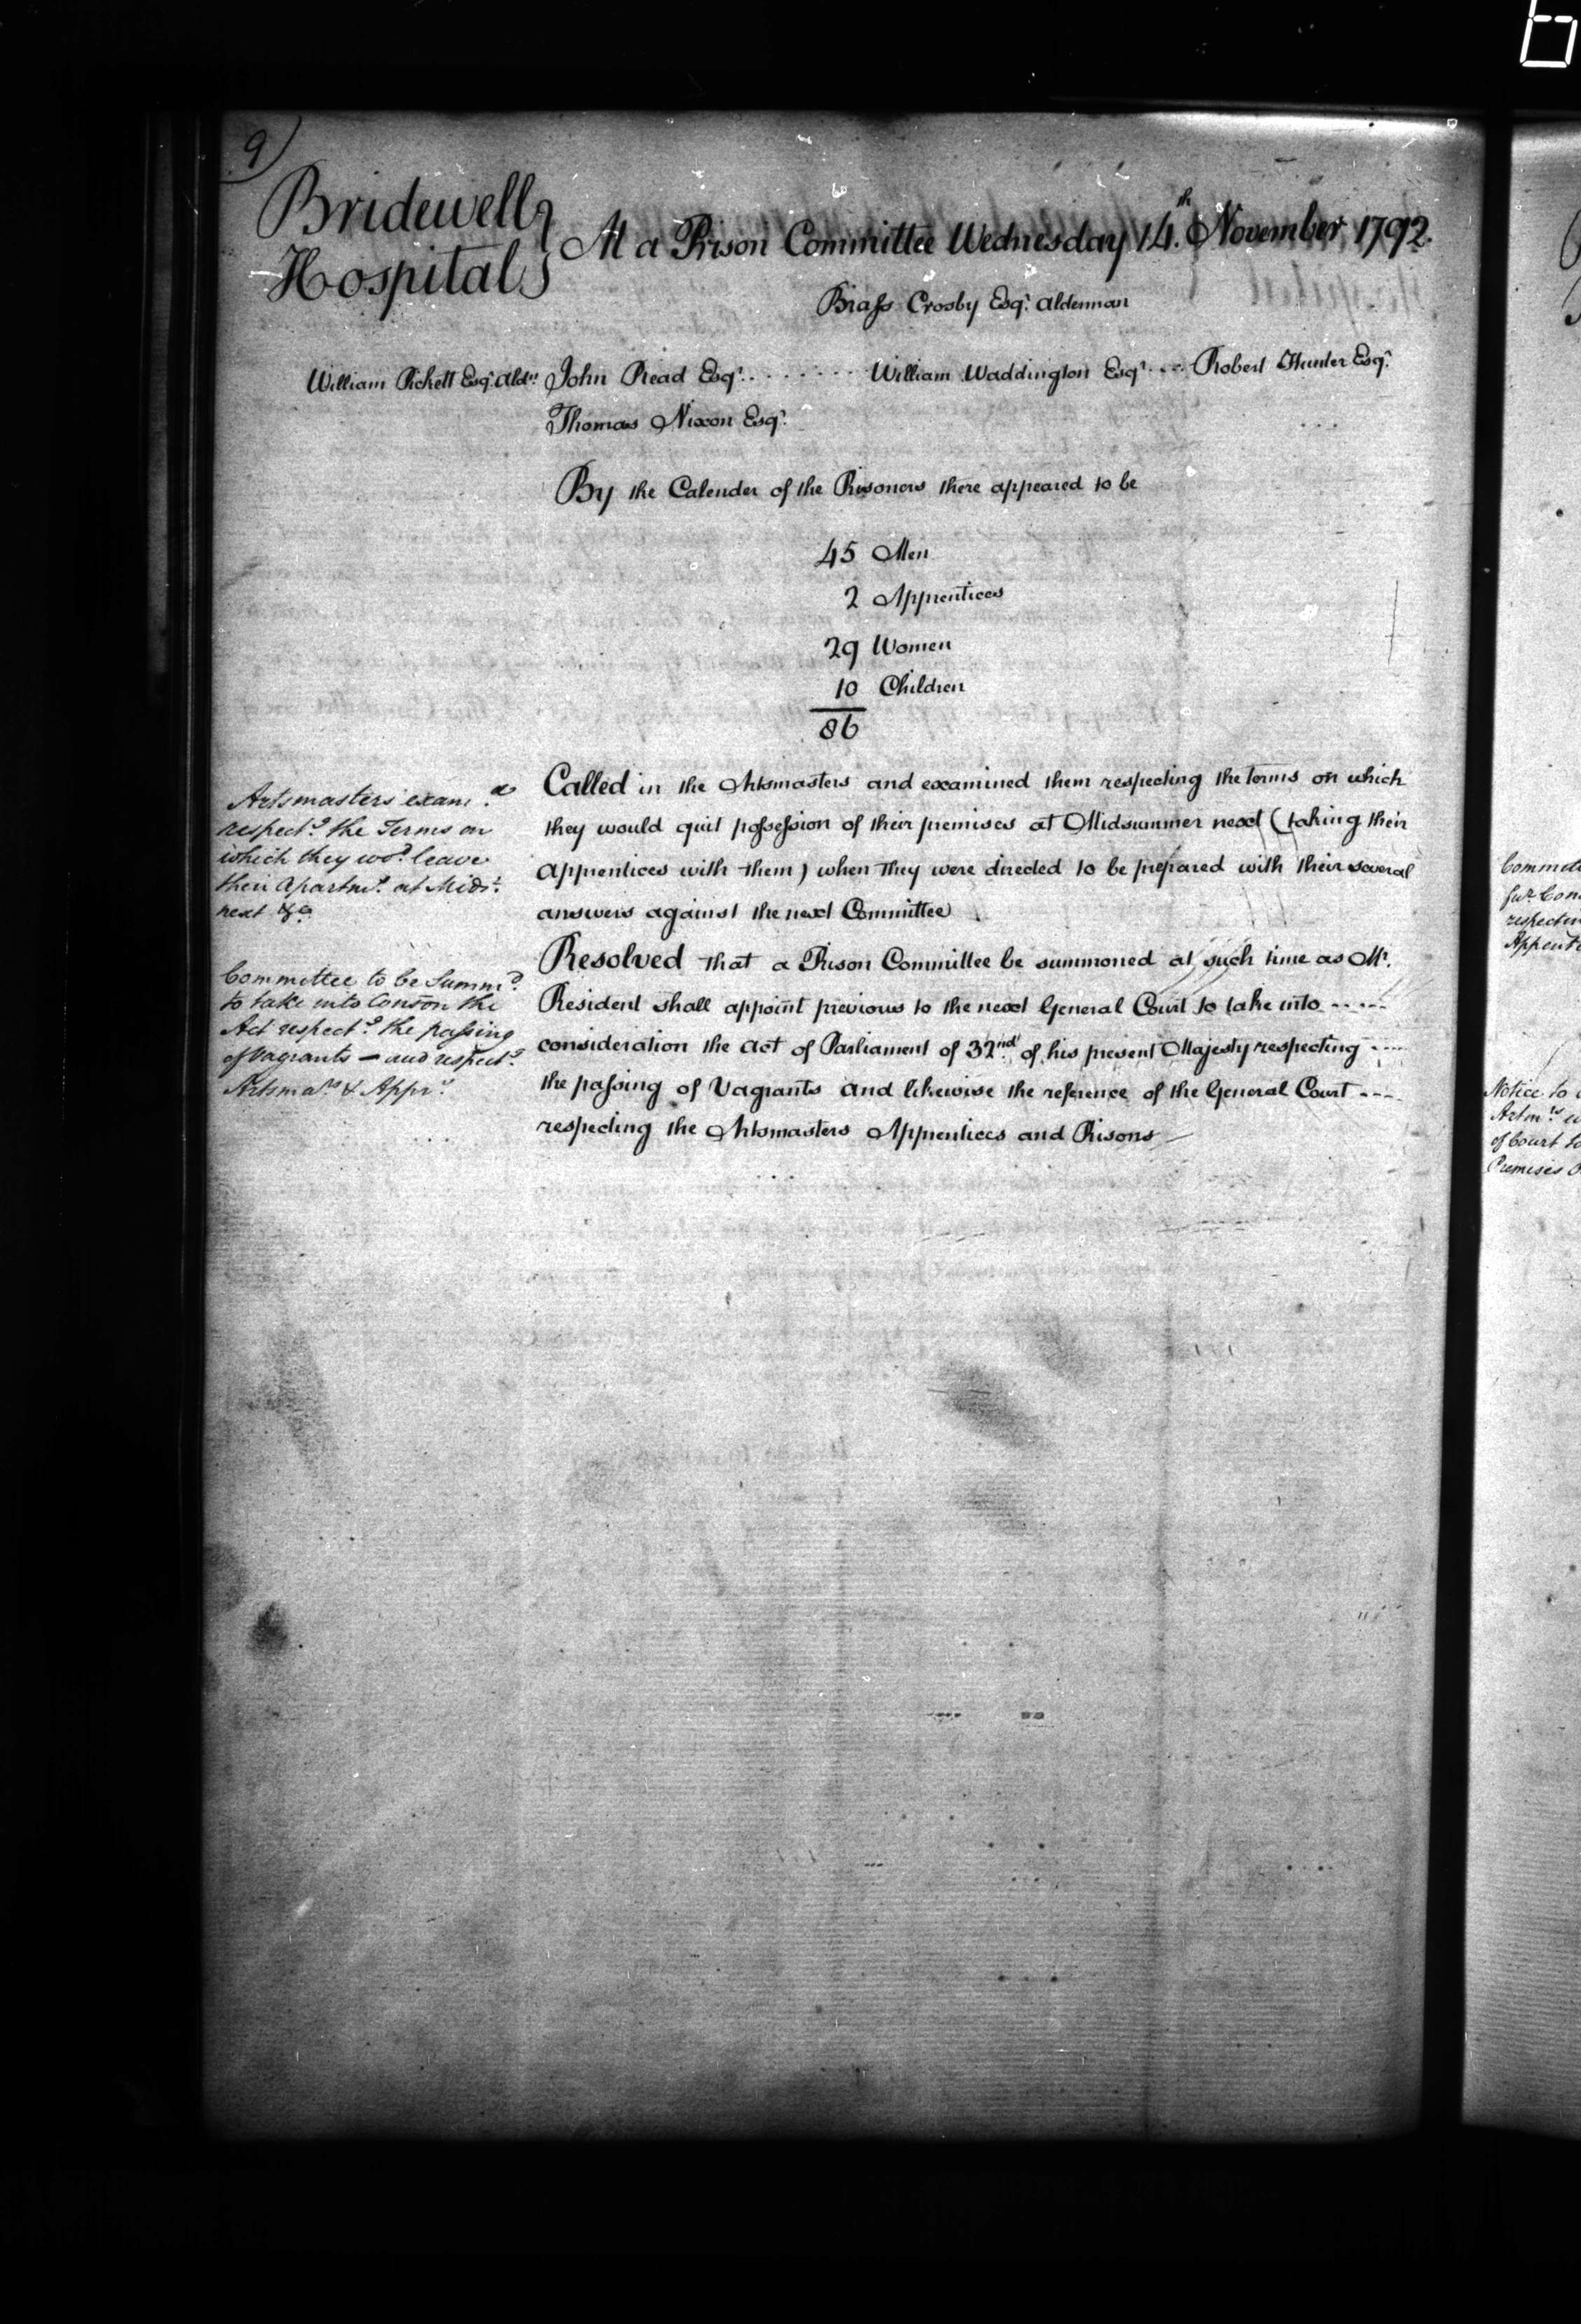 9)
Bridewell
Hospital } At a Prison Committee Wednesday 14.th November 1792.
Brass Crosby Esqr. Alderman
William Pickett Esqr. Aldn. John Read Esqr. . . . . . . . William Waddington Esqr. . . . . Robert Hunter Esqr.
Thomas Nixon Esqr.
By the Calender of the Prisoners there appeared to be
45 Men
2 Apprentices
29 Women
10 Children
86
Artsmasters exam.d
respectg. the Terms on
which they wod. leave
their Apartmts. at Midsr.
next &c.
Called in the Artsmasters and examined them respecting the terms on which
they would quit possession of their premises at Midsummer next (taking their
Apprentices with them) when they were directed to be prepared with their several
answers against the next Committee
Committee to be Summd.
to take into Conson the
Act respectg. the passing
of Vagrants — and respectg.
Artsmars. & Apprs.
Resolved that a Prison Committee be summoned at such time as Mr.
President shall appoint previous to the next General Court to take into - - - - -
consideration the Act of Parliament of 32nd. of his present Majesty respecting - - - -
the passing of Vagrants and likewise the reference of the General Court - - - -
respecting the Artsmasters Apprentices and Prisons —
Notice to
of Court to
Premises